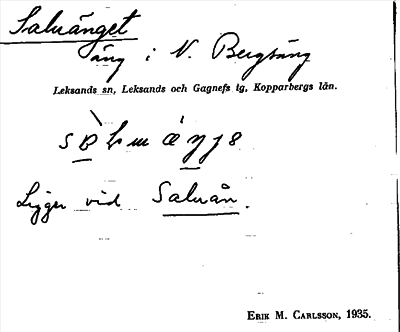 Saluänget
äng i N. Bergsäng
Leksands sn, Leksands och Gagnefs tg, Kopparbergs län.
Ligger vid Saluån.
ERIK M. CARLSSON, 1935.